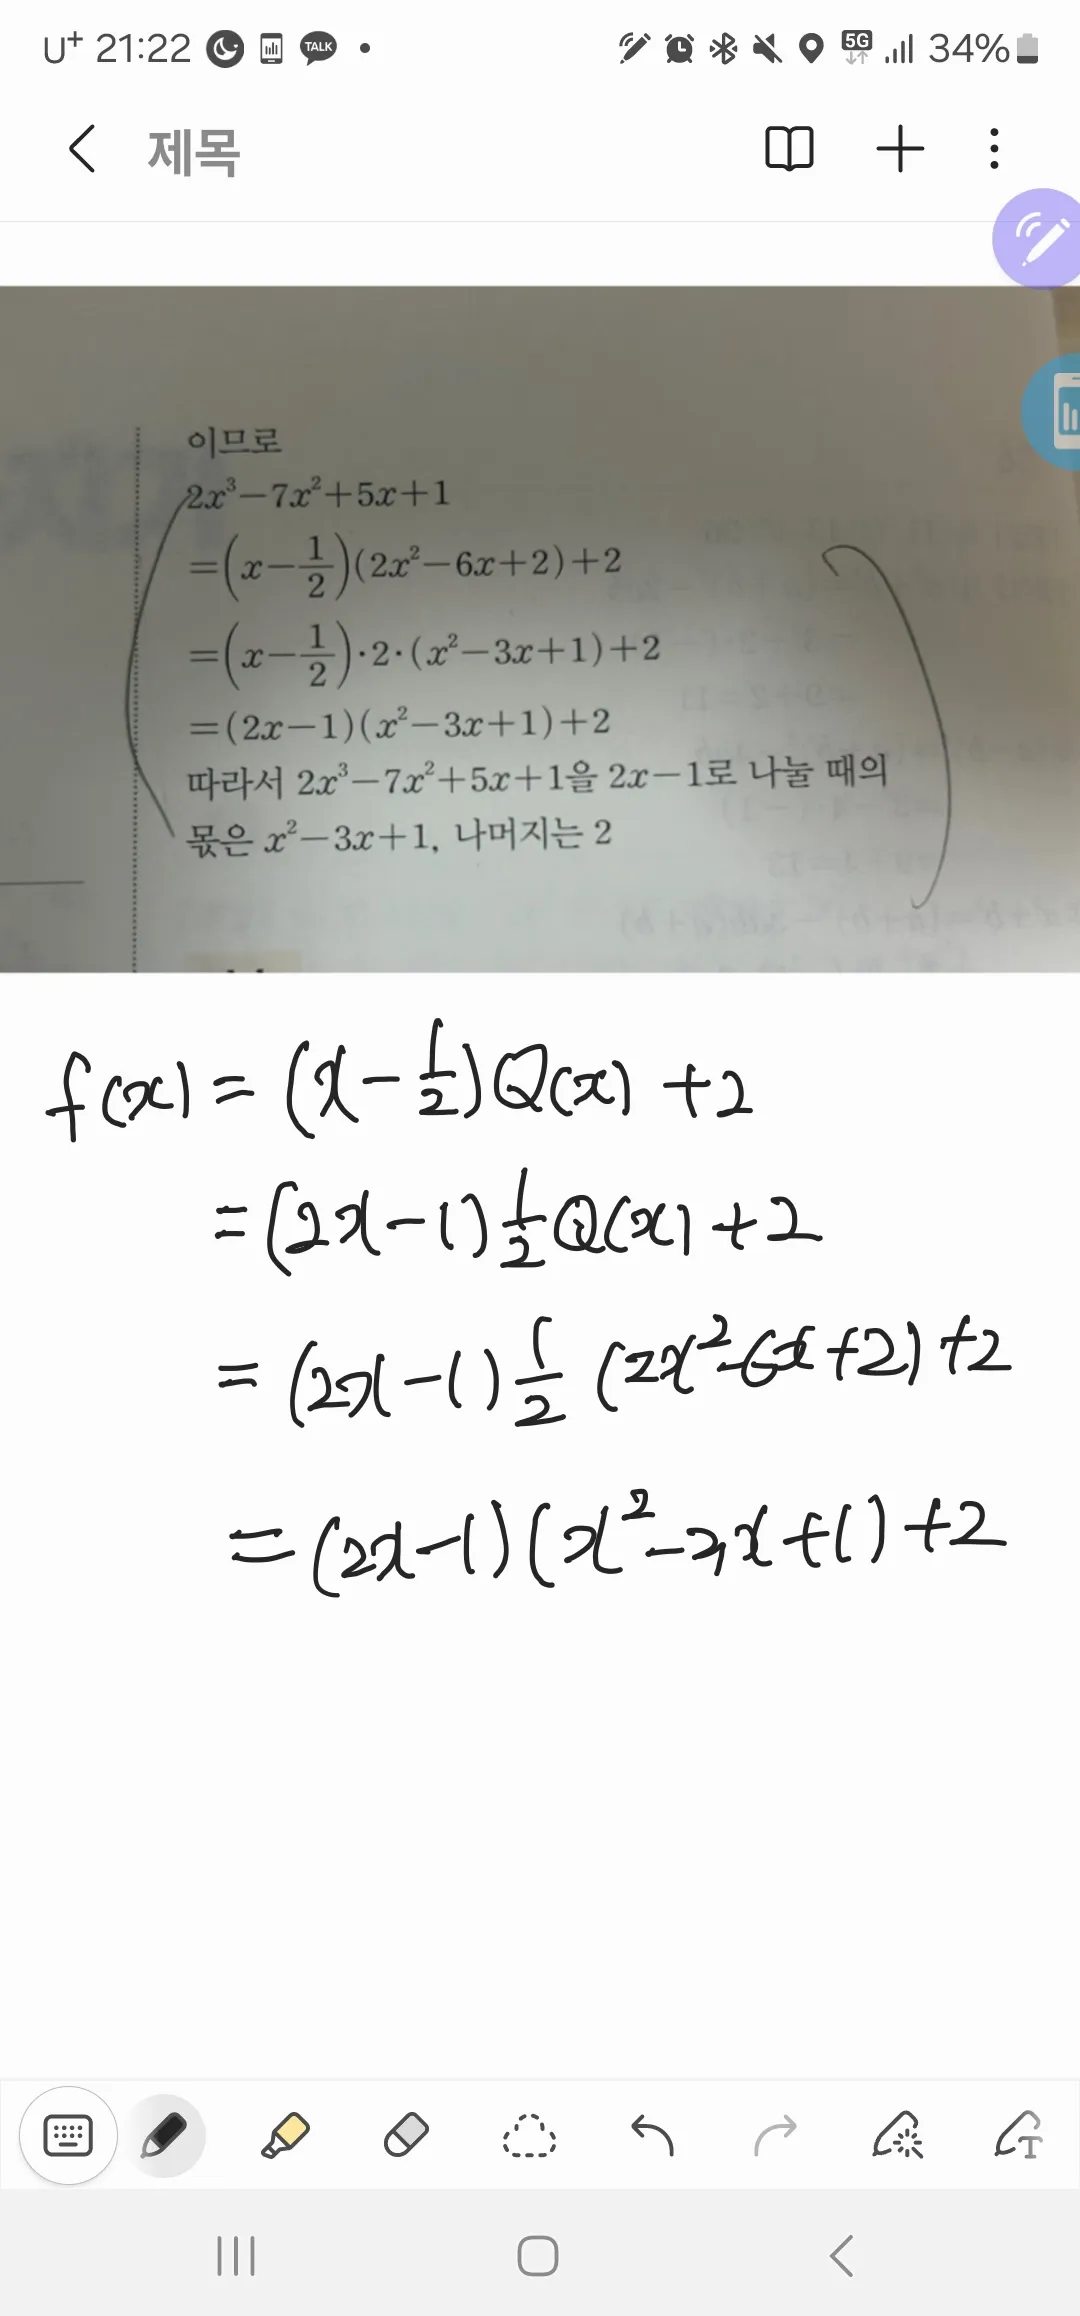 U+ 21:22 TALK 5G 34%
제목
이므로
2x³−7x²+5x+1
=(x−1/2)(2x²−6x+2)+2
=(x−1/2)·2·(x²−3x+1)+2
=(2x−1)(x²−3x+1)+2
따라서 2x³−7x²+5x+1을 2x−1로 나눌 때의
몫은 x²−3x+1, 나머지는 2
f(x) = (x−1/2)Q(x) +2
=(2x−1)1/2Q(x)+2
= (2x−1) 1/2 (2x²−6x+2)+2
=(2x−1)(x²−3x+1)+2
T